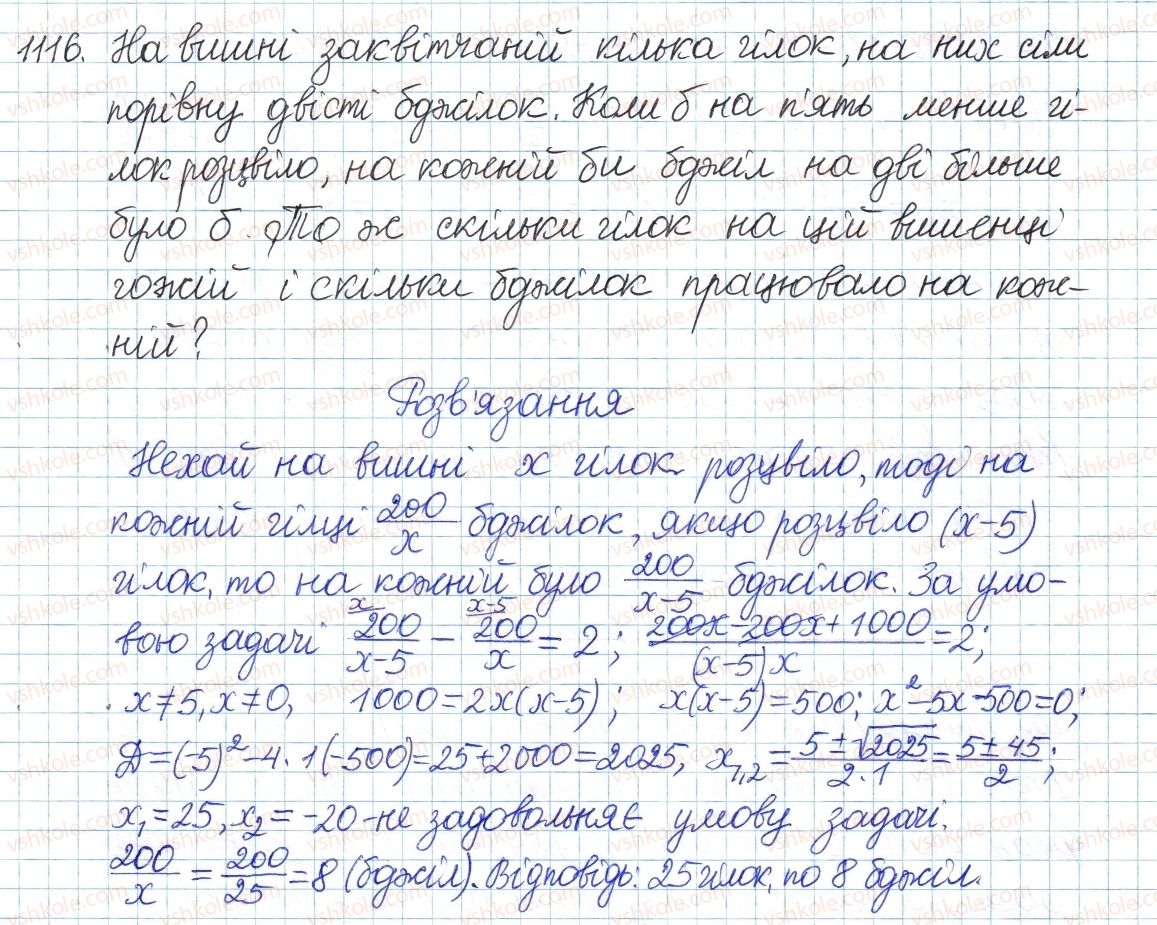 1116. На вишні заквітчаній кілька гілок, на них сіли
порівну двісті бджілок. Коли б на п'ять менше гі-
лок розцвіло, на кожній би бджіл на дві більше
було б. То ж скільки гілок на цій вишенці
гожій і скільки бджілок працювало на кож-
ній?
Розв'язання
Нехай на вишні x гілок розцвіло, тоді на
кожній гілці 200/x бджілок, якщо розцвіло (x-5)
гілок, то на кожній було 200/(x-5) бджілок. За умо-
вою задачі x/ 200/(x-5) - x-5/ 200/x = 2; (200x-200x+1000)/((x-5)x) = 2;
x≠5, x≠0, 1000=2x(x-5); x(x-5)=500; x²-5x-500=0;
Д=(-5)²-4·1(-500)=25+2000=2025, x₁,₂=(5±√2025)/(2·1)=(5±45)/2;
x₁=25, x₂=-20-не задовольняє умову задачі.
200/x = 200/25 = 8 (бджіл). Відповідь: 25 гілок, по 8 бджіл.